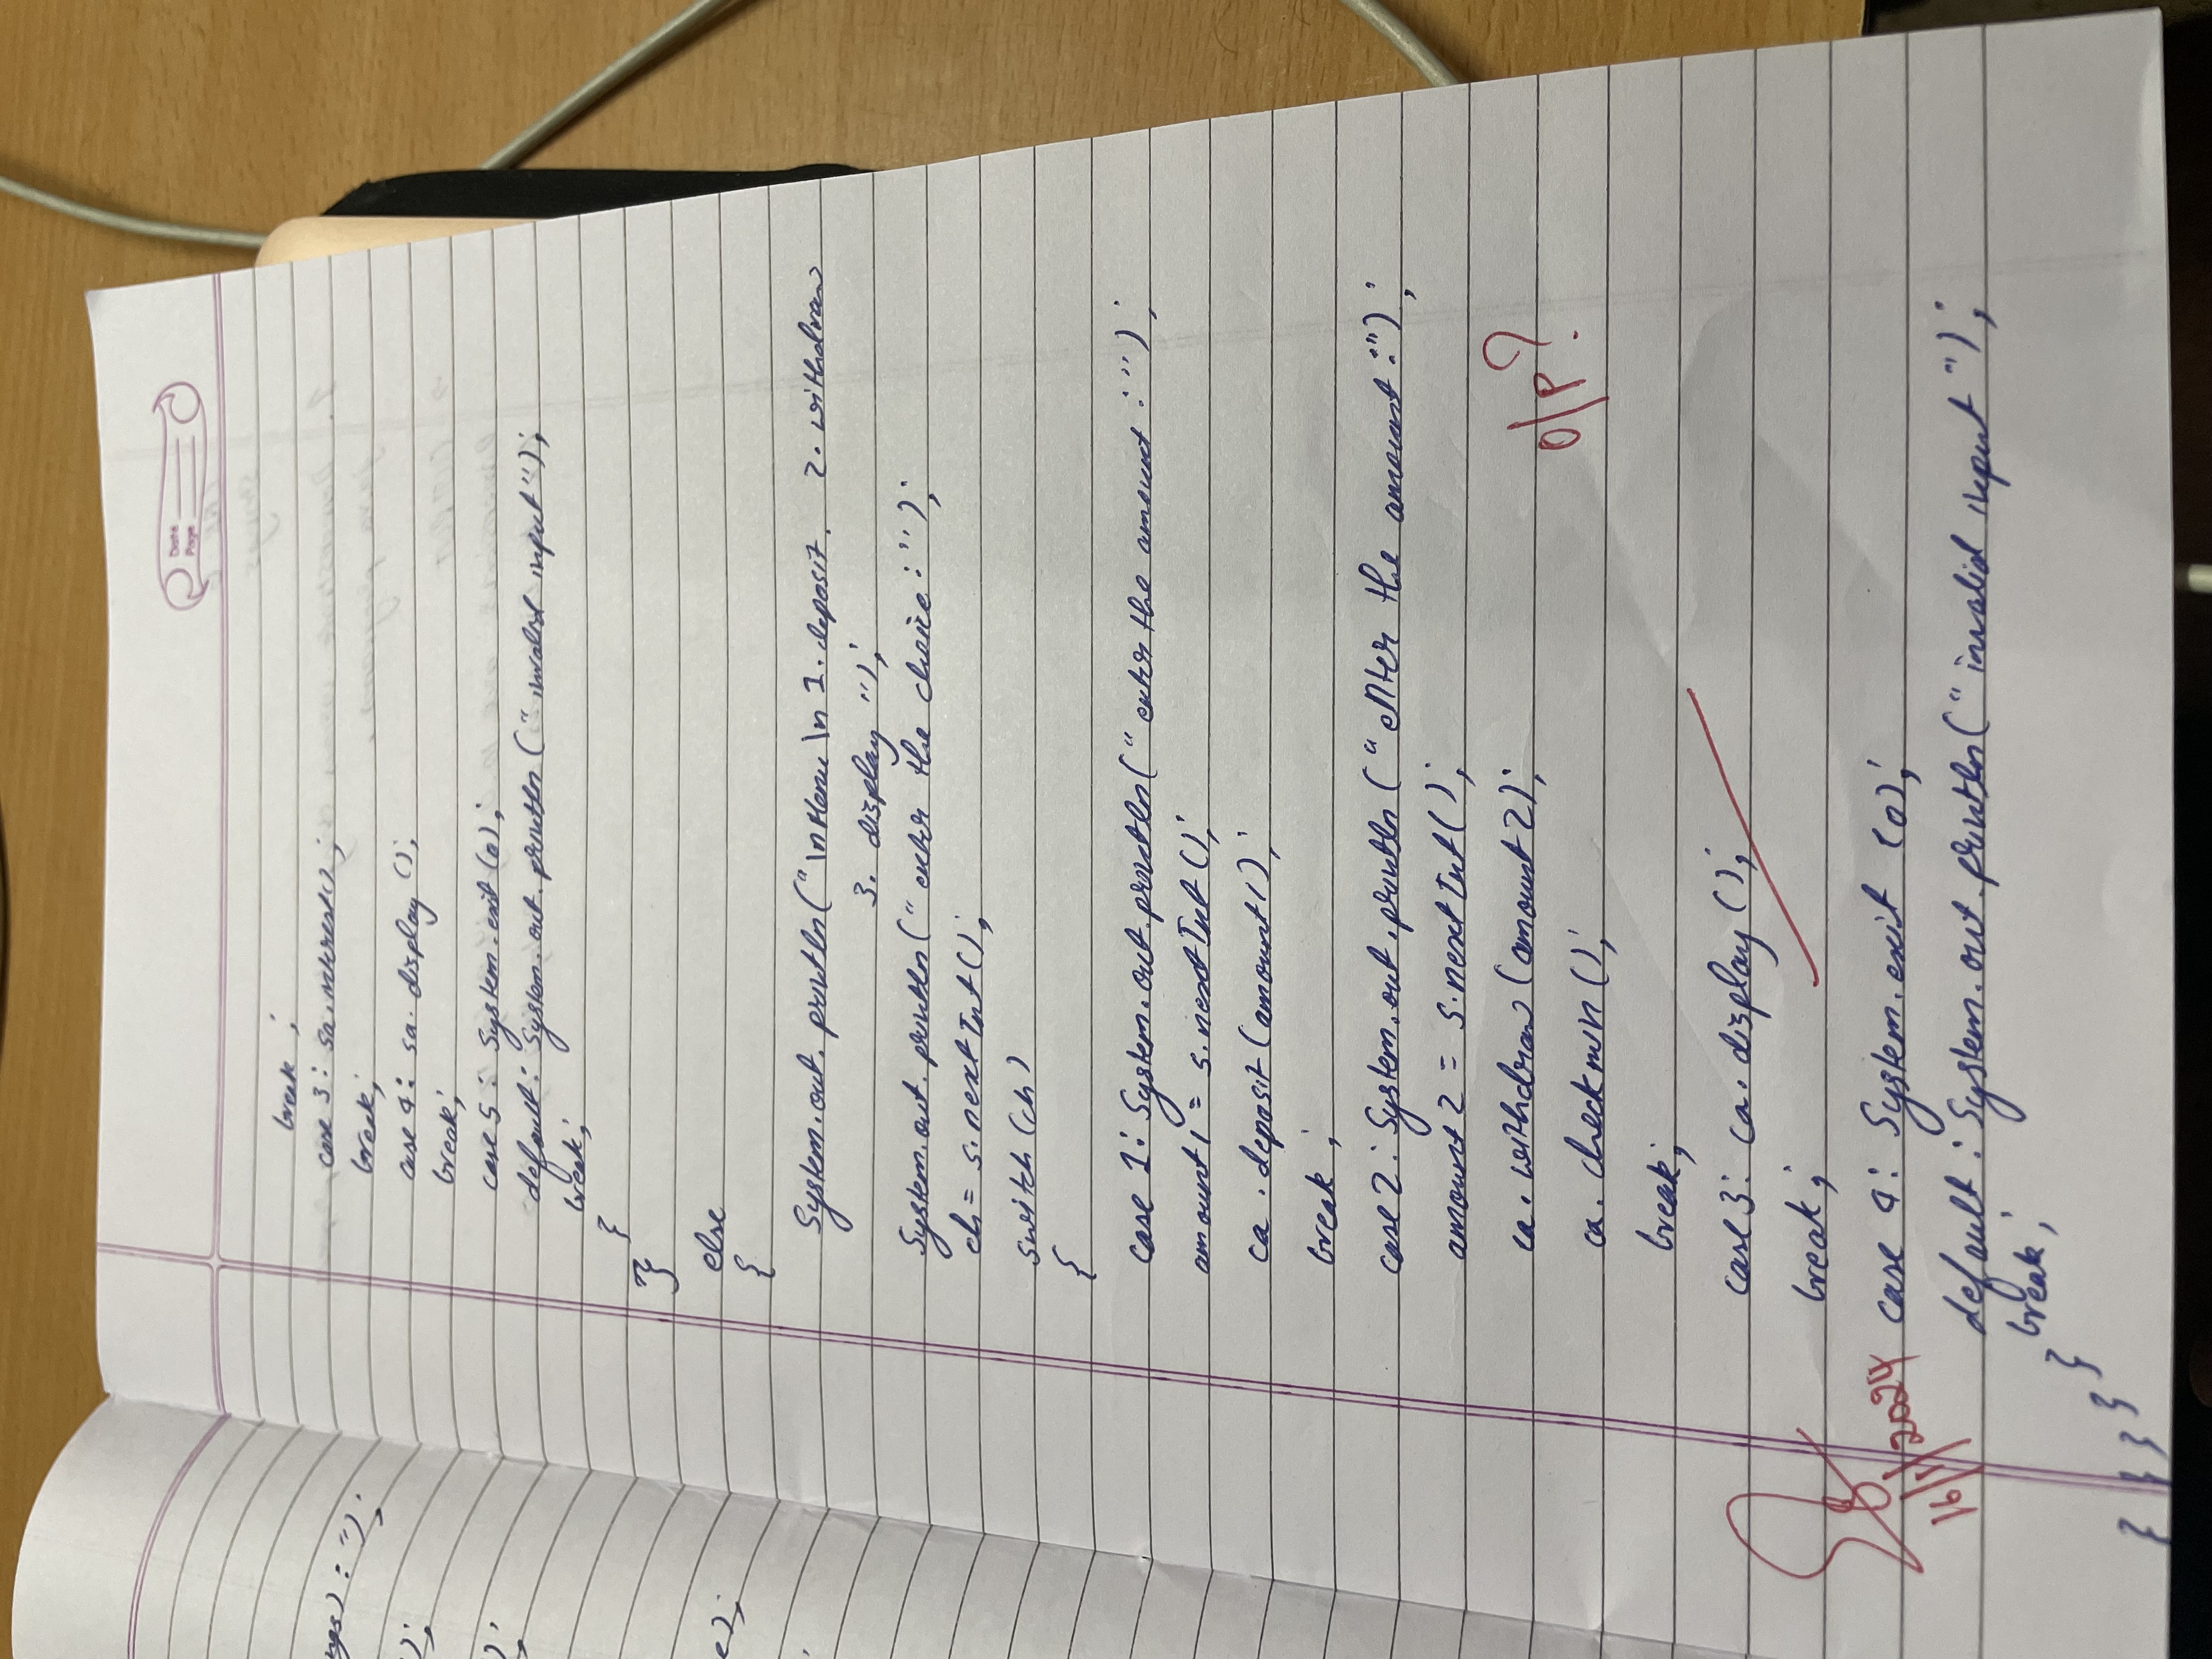 Date
Page
break ;
case 3: sa.interest();
break;
case 4: sa. display ();
break;
case 5: System.exit (0);
default: System.out.println (" invalid input");
break;
}
}
else
{
System.out.println("\nMenu \n 1. deposit. 2. withdraw
3. display ");
System.out.println(" enter the choice:");
ch= s.nextInt();
switch (ch)
{
case 1: System.out.println(" enter the amount :");
amount1 = s.nextInt();
ca .deposit (amount1);
break ;
case 2: System.out.println (" enter the amount :");
amount 2 = s.nextInt();
ca. withdraw (amount 2);
O/P?
ca. checkmin ();
break;
case 3: ca. display ();
break;
case 4: System.exit (0);
16/1/2024
default : System.out.println(" invalid input ");
break;
}
}
} } }
ngs) : ");
);
);
e);